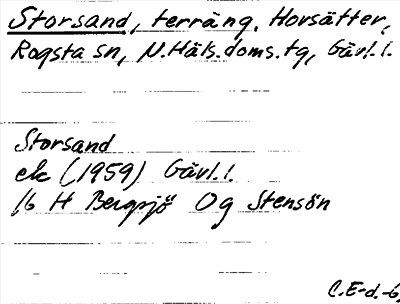 Storsand, terräng, Hovsätter,
Rogsta sn, N.Häls.doms.tg, Gävl.l.
Storsand
ek (1959) Gävl.l.
16 H Bergsjö Og Stensön
C.E-d.-6